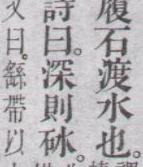 履石渡水也。
詩曰。深則砅。
又曰。繇帶以